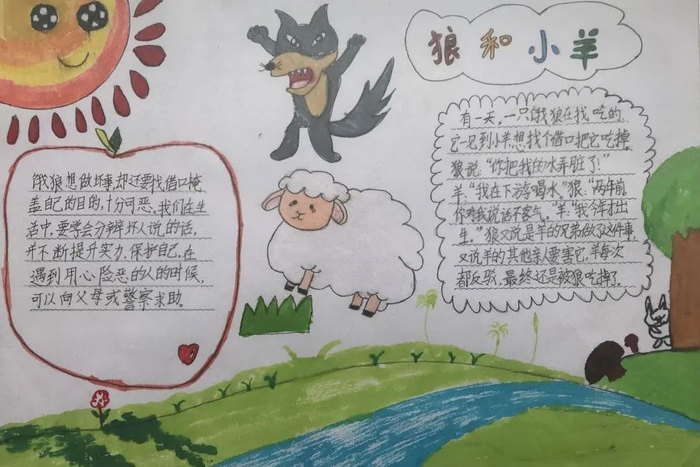 狼和小羊
有一天，一只饿狼在找吃的
它一见到小羊，想找个借口把它吃掉
狼说："你把我的水弄脏了！"
羊："我在下游喝水。"狼："两年前
你对我说话不客气。"羊："我今年才出
生。"狼又说是羊的兄弟做了这件事，
又说羊的其他亲人要害它，羊每次
都反驳，最终还是被狼吃掉了。
饿狼想做坏事，却还要找借口掩
盖自己的目的，十分可恶。我们在生
活中，要学会分辨坏人说的话，
并不断提升实力，保护自己，在
遇到用心险恶的人的时候，
可以向父母或警察求助。